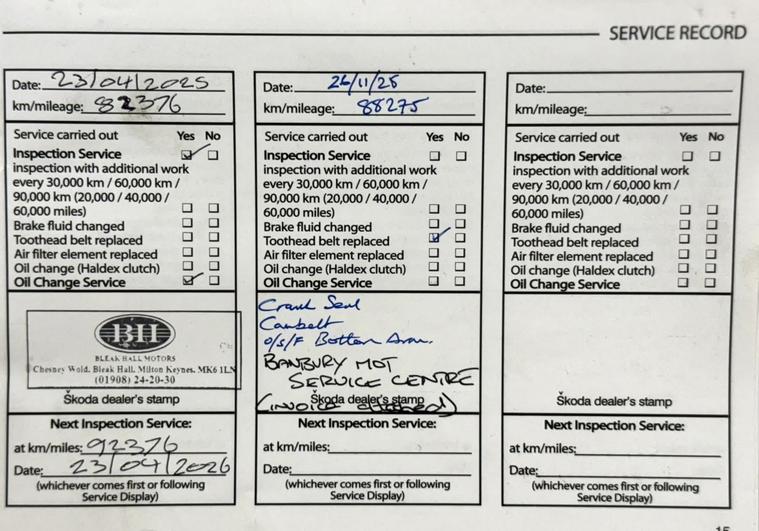 SERVICE RECORD
Date: 23/04/2025
km/mileage: 82376
Service carried out Yes No
Inspection Service
inspection with additional work
every 30,000 km / 60,000 km /
90,000 km (20,000 / 40,000 /
60,000 miles)
Brake fluid changed
Toothead belt replaced
Air filter element replaced
Oil change (Haldex clutch)
Oil Change Service
BH
BLEAK HALL MOTORS
Chesney Wold. Bleak Hall. Milton Keynes. MK6 1LN
(01908) 24-20-30
Škoda dealer's stamp
Next Inspection Service:
at km/miles: 92376
Date: 23/04/2026
(whichever comes first or following
Service Display)
Date: 26/11/25
km/mileage: 88275
Service carried out Yes No
Inspection Service
inspection with additional work
every 30,000 km / 60,000 km /
90,000 km (20,000 / 40,000 /
60,000 miles)
Brake fluid changed
Toothead belt replaced
Air filter element replaced
Oil change (Haldex clutch)
Oil Change Service
Crank Seal
Cambelt
o/s/F Bottom Arm.
BANBURY MOT
SERVICE CENTRE
Škoda dealer's stamp
(INVOICE attached)
Next Inspection Service:
at km/miles:
Date:
(whichever comes first or following
Service Display)
Date:
km/mileage:
Service carried out Yes No
Inspection Service
inspection with additional work
every 30,000 km / 60,000 km /
90,000 km (20,000 / 40,000 /
60,000 miles)
Brake fluid changed
Toothead belt replaced
Air filter element replaced
Oil change (Haldex clutch)
Oil Change Service
Škoda dealer's stamp
Next Inspection Service:
at km/miles:
Date:
(whichever comes first or following
Service Display)
15